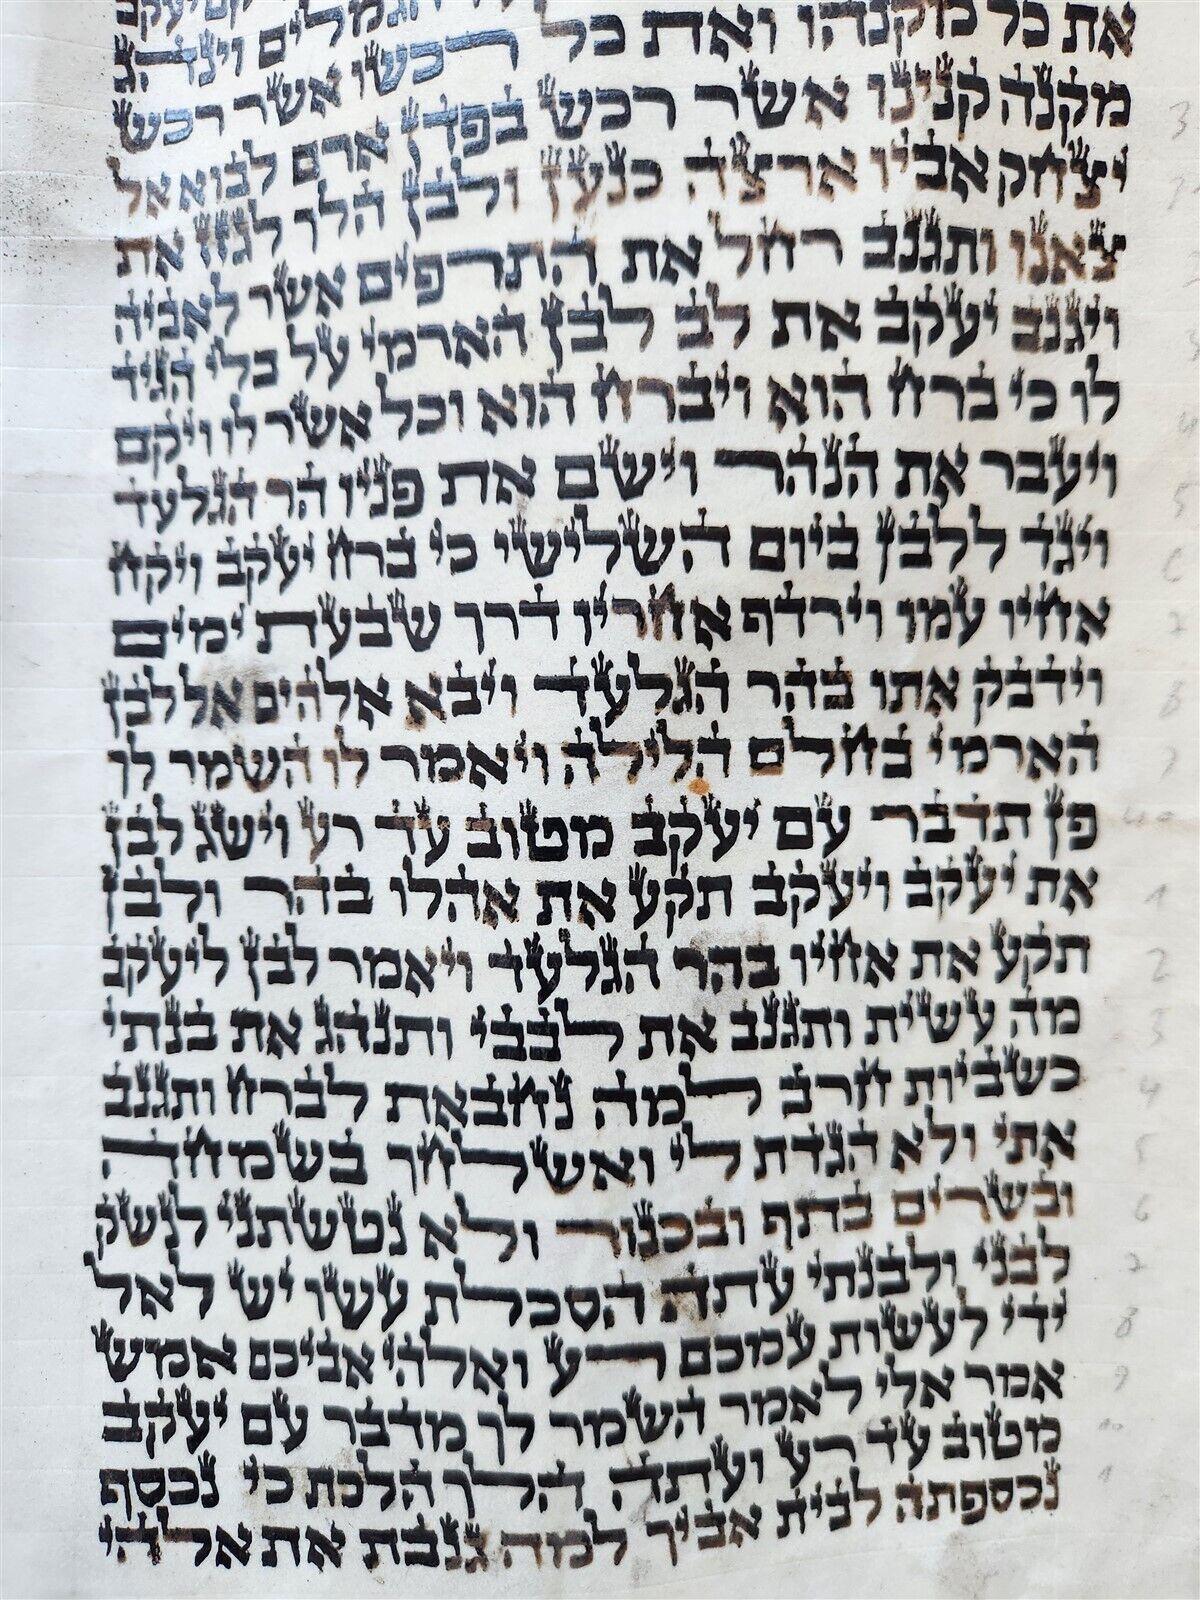 את כל מקנהו ואת כל רכשו אשר רכש
מקנה קנינו אשר רכש בפדן ארם לבוא אל
יצחק אביו ארצה כנען ולבן הלך לגזז את
צאנו ותגנב רחל את התרפים אשר לאביה
ויגנב יעקב את לב לבן הארמי על בלי הגיד
לו כי ברח הוא ויברח הוא וכל אשר לו ויקם
ויעבר את הנהר וישם את פניו הר הגלעד
ויגד ללבן ביום השלישי כי ברח יעקב ויקח
אחיו עמו וירדף אחריו דרך שבעת ימים
וידבק אתו בהר הגלעד ויבא אלהים אל לבן
הארמי בחלם הלילה ויאמר לו השמר לך
פן תדבר עם יעקב מטוב עד רע וישג לבן
את יעקב ויעקב תקע את אהלו בהר ולבן
תקע את אחיו בהר הגלעד ויאמר לבן ליעקב
מה עשית ותגנב את לבבי ותנהג את בנתי
כשביות חרב למה נחבאת לברח ותגנב
אתי ולא הגדת לי ואשלחך בשמחה
ובשרים בתף ובכנור ולא נטשתני לנשק
לבני ולבנתי עתה הסכלת עשו יש לאל
ידי לעשות עמכם רע ואלהי אביכם אמש
אמר אלי לאמר השמר לך מדבר עם יעקב
מטוב עד רע ועתה הלך הלכת כי נכסף
נכספתה לבית אביך למה גנבת את אלהי